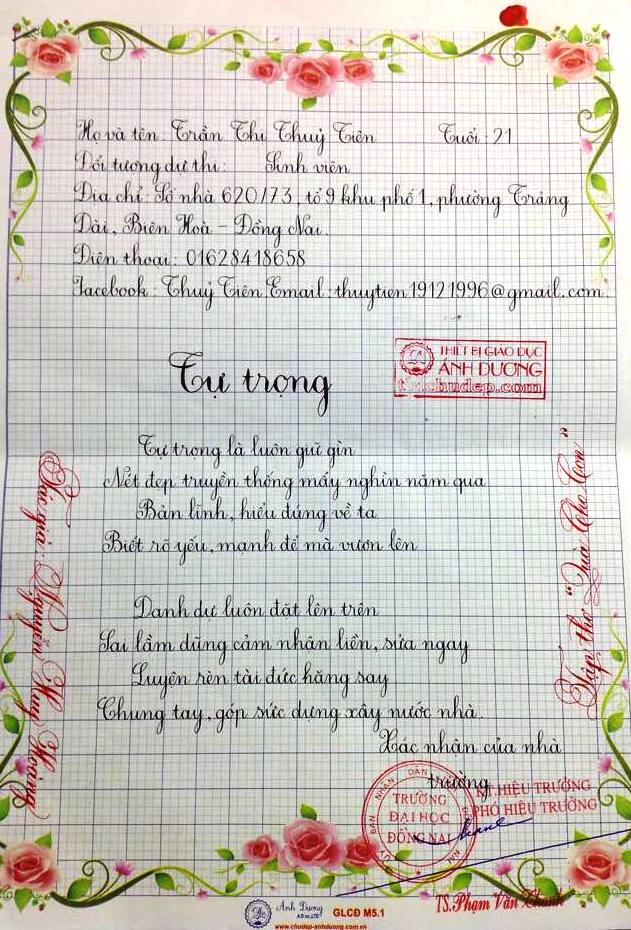 Họ và tên: Trần Thị Thuỷ Tiên Tuổi: 21
Đối tượng dự thi: Sinh viên
Địa chỉ: Số nhà 620/73, tổ 9 khu phố 1, phường Trảng
Dài, Biên Hoà - Đồng Nai.
Điện thoại: 01628418658
Facebook: Thuỷ Tiên Email: thuytien19121996@gmail.com
THIẾT BỊ GIÁO DỤC
ÁNH DƯƠNG
chudep.com
Tự trọng
Tự trọng là luôn giữ gìn
Nét đẹp truyền thống mấy nghìn năm qua
Bản lĩnh, hiểu đúng về ta
Biết rõ yếu, mạnh để mà vươn lên
Danh dự luôn đặt lên trên
Sai lầm dũng cảm nhân liền, sửa ngay
Luyện rèn tài đức hăng say
Chung tay, góp sức dựng xây nước nhà.
Tác giả: Nguyễn Huy Hoàng
Tập thơ "Quà Cho Con"
Xác nhận của nhà
trường
ỦY BAN NHÂN DÂN
TRƯỜNG
ĐẠI HỌC
ĐỒNG NAI
KT.HIỆU TRƯỞNG
PHÓ HIỆU TRƯỞNG
TS.Phạm Văn Thanh
Ánh Dương
GLCĐ M5.1
www.chudep-anhduong.com.vn